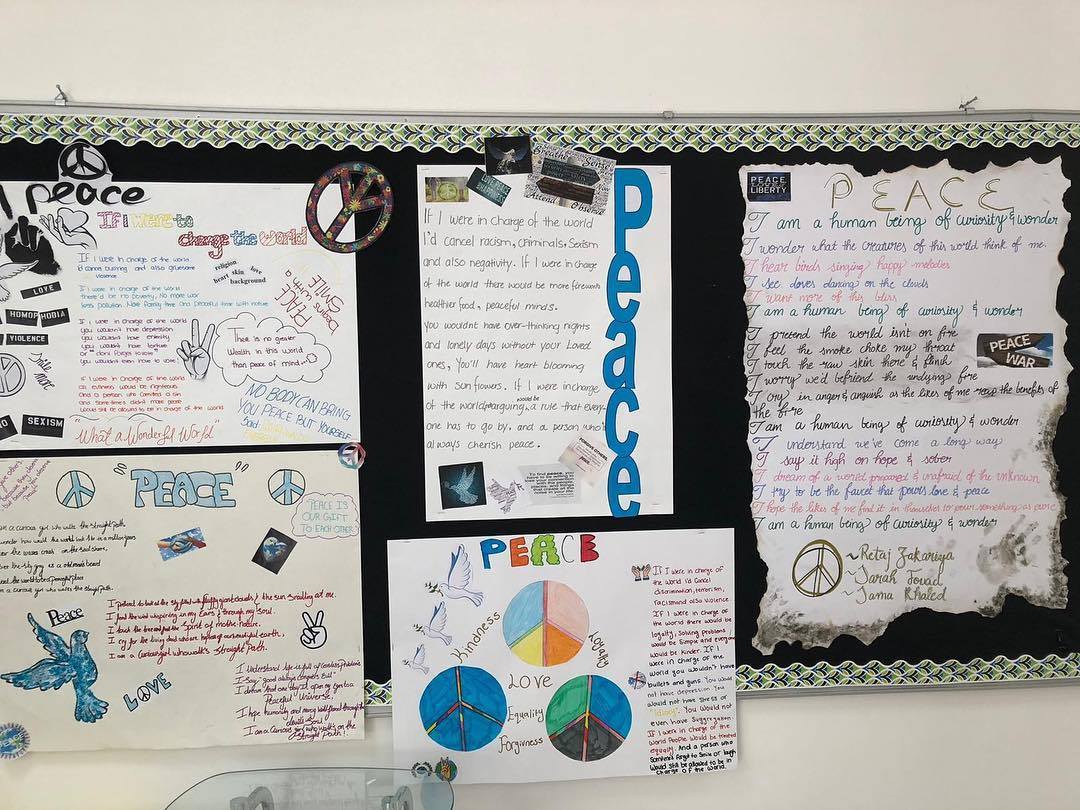 peace
If I were to
change the World
If I were in charge of the world
I'd cancel bullying and also gruesome
violence
If I were in charge of the world
there'd be no poverty, No more war
less pollution. More family time and peaceful time with nature
If I were in charge of the world
you wouldn't have depression
you wouldn't have enemity
you wouldn't have torture
or "dont forget to vote"
You wouldn't even have to vote
If I were in charge of the world
an evilmen would be righteous
And a person who comited a sin
and sometimes didn't make peace
Would still be allowed to be in charge of the world
"What a Wonderful World"
religion
heart skin love
background
PEACE
Begins with
SMILE
There is no greater
Wealth in this world
than peace of mind
NO BODY CAN BRING
YOU PEACE BUT YOURSELF
Said
LOVE
HOMOPHOBIA
VIOLENCE
Smile more
SEXISM
"PEACE"
PEACE IS
OUR GIFT
TO EACH OTHER
I am a curious girl who walks the straight path
I wonder how the world will be in a million years
I am a curious girl who walks the straight path.
I pretend to look at the sky filled with fluffy giant clouds & the sun smiling at me.
I feel the wind whispering in my ears & through my soul.
I touch the tree and feel the spirit of mother nature.
I cry for the dying souls who are hopless of our beautiful earth,
I am a curious girl who walk's the Straight path.
Peace
LOVE
I Understand life is full of countless problems
I Say "good always conquers evil"
I dream that one day I'll open my eyes to a
Peaceful Universe,
I hope humanity and mercy will flood through the
devil's soul
I am a curious girl who walks on the
Straight Path!
Breathe Sense
Attend Observe
LOVE PEACE
HAPPINESS
Peace
If I were in charge of the world
I'd cancel racism, criminals, Sexism
and also negativity. If I were in charge
of the world there would be more fireworks
healthier food, peaceful minds.
you wouldnt have over-thinking nights
and lonely days without your Loved
ones, You'll have heart blooming
with sun flowers. If I were in charge
of the world, arguing would be a rule that every-
one has to go by. and a person who's
always cherish peace.
To find peace, you
have to be willing to
lose your connection
with the people,
places, and things
that create all the
noise in your life.
PEACE
Kindness
Loyalty
LOVE
Equality
Forgivness
If I were in charge
of the world I'd Cancel
discrimination, terrorism,
racism and also violence
If I were in charge of
the world there would be
loyalty, Solving problems
would be Simple and everyone
would be kinder. If I
were in charge of the
world you wouldn't have
bullets and guns. You would
not have depression. You
would not have stress or
"Idiocy". You would not
even have Suggregation
If I were in charge of the
world People would be treated
equally. And a person who
Sometimes forgot to Smile or laugh
Would still be allowed to be in
charge of the world.
PEACE
LOVE
LIBERTY
PEACE
I am a human being of curiosity & wonder
I wonder what the creatures of this world think of me.
I hear birds singing happy melodies
I see doves dancing on the clouds
I want more of this bliss
I am a human being of curiosity & wonder
I pretend the world isnt on fire
I feel the smoke choke my throat
I touch the raw skin there & flinch
I worry we'd befriend the undying fire
I cry in anger & anguish as the likes of me reap the benefits of
the fire
I am a human being of curiosity & wonder
I understand we've come a long way
I say it high on hope & sober
I dream of a world prepared & unafraid of the unknown
I try to be the faucet that pours love & peace
I hope the likes of me find it in themselves to pour something as pure
I am a human being of curiosity & wonder
PEACE
WAR
~Retaj Zakariya
~Jarah Fouad
~Jama Khaled